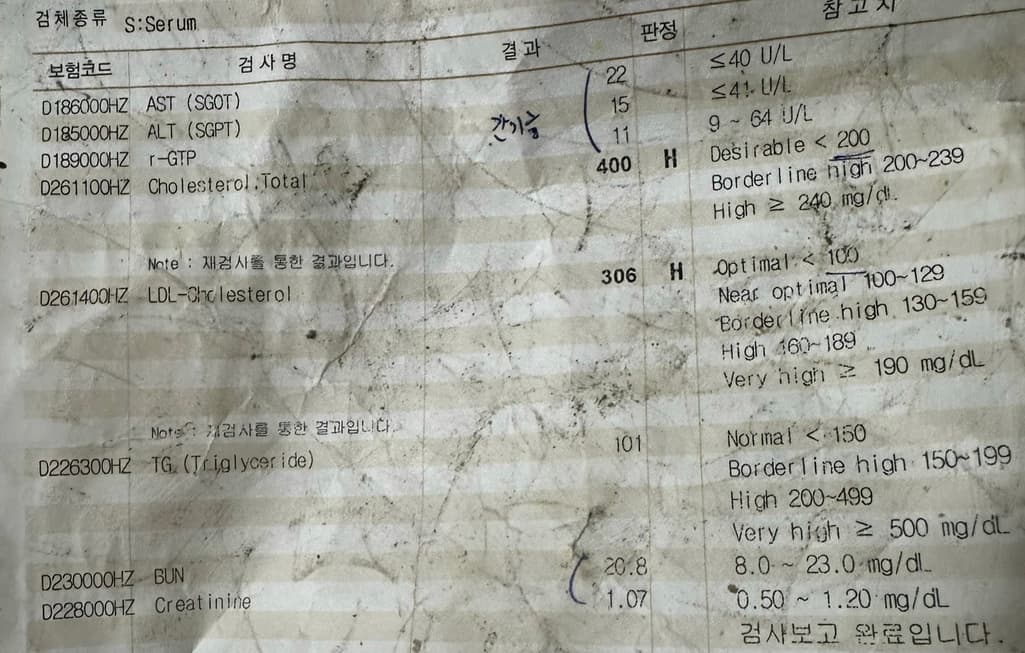 검체종류 S:Serum
보험코드 검사명 결과 판정 참고치
D186000HZ AST (SGOT) 22 ≤40 U/L
D185000HZ ALT (SGPT) 15 ≤41 U/L
간기능
D189000HZ r-GTP 11 9 ~ 64 U/L
D261100HZ Cholesterol,Total 400 H Desirable < 200
Borderline high 200~239
High ≥ 240 mg/dL
Note : 재검사를 통한 결과입니다.
D261400HZ LDL-Cholesterol 306 H Optimal < 100
Near optimal 100~129
Borderline high 130~159
High 160~189
Very high ≥ 190 mg/dL
Note : 재검사를 통한 결과입니다.
D226300HZ TG (Triglyceride) 101 Normal < 150
Borderline high 150~199
High 200~499
Very high ≥ 500 mg/dL
D230000HZ BUN 20.8 8.0 ~ 23.0 mg/dL
D228000HZ Creatinine 1.07 0.50 ~ 1.20 mg/dL
검사보고 완료입니다.